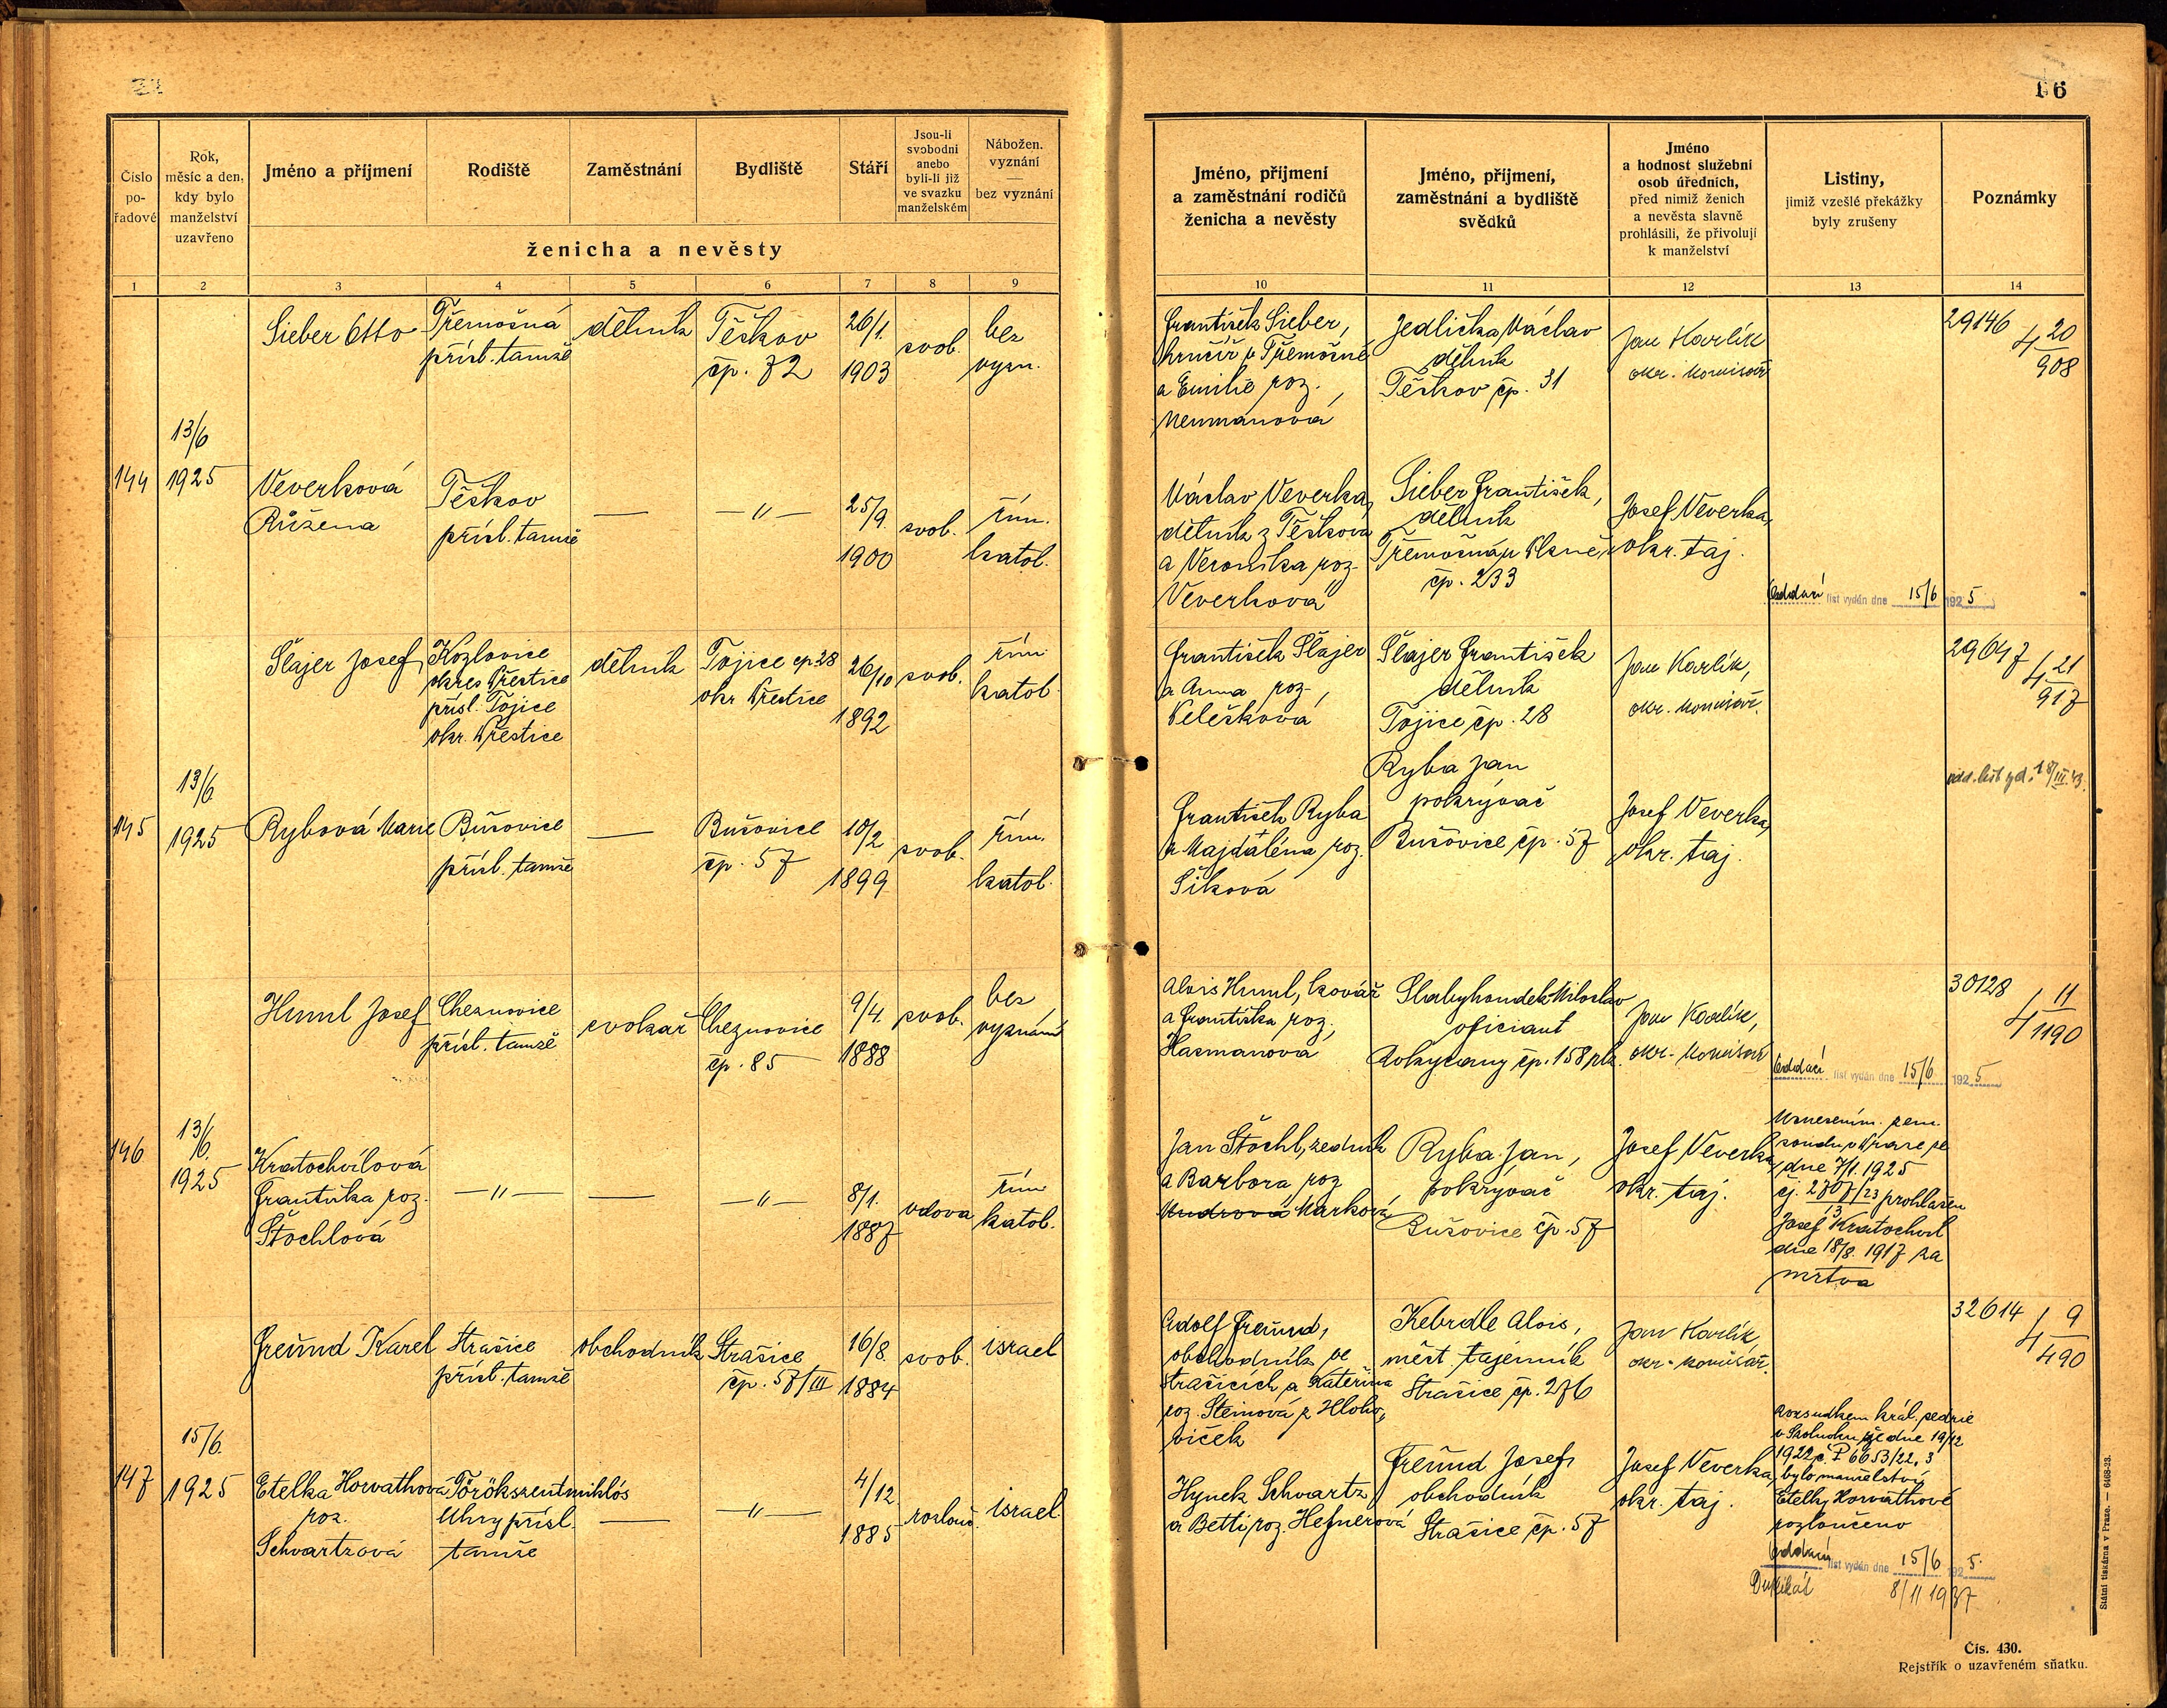 16
Číslo
po-
řadové
Rok,
měsíc a den,
kdy bylo
manželství
uzavřeno
Jméno a příjmení
Rodiště
Zaměstnání
Bydliště
Stáří
Jsou-li
svobodni
anebo
byli-li již
ve svazku
manželském
Nábožen.
vyznání
—
bez vyznání
ženicha a nevěsty
1 2 3 4 5 6 7 8 9
Jméno, příjmení
a zaměstnání rodičů
ženicha a nevěsty
Jméno, příjmení,
zaměstnání a bydliště
svědků
Jméno
a hodnost služební
osob úředních,
před nimiž ženich
a nevěsta slavně
prohlásili, že přivolují
k manželství
Listiny,
jimiž vzešlé překážky
byly zrušeny
Poznámky
10 11 12 13 14
144
13/6
1925
Sieber Otto
Třemošná
přísl. tamže
dělník
Těškov
čp. 72
26/1.
1903
svob.
bez
vyzn.
František Sieber,
hrnčíř v Třemošné
a Emilie roz.
Neumanová
Jedlička Václav
dělník
Těškov čp. 31
Jan Karlík
okr. komisař
29146
4 20
908
Veverková
Růžena
Těškov
přísl. tamže
—
—〃—
25/9.
1900
svob.
řím.
katol.
Václav Veverka,
dělník z Těškova
a Veronika roz.
Veverková
Sieber František,
dělník
Třemošná u Plzně,
čp. 233
Josef Veverka,
okr. taj.
Oddací list vydán dne 15/6 1925
145
13/6
1925
Šlajer Josef
Kozlovice
okres Přeštice
přísl. Tojice
okr. Přeštice
dělník
Tojice čp 28
okr Přeštice
26/10
1892
svob.
řím.
katol.
František Šlajer
a Anna roz.
Pelešková
Šlajer František
dělník
Tojice čp. 28
Jan Karlík,
okr. komisař.
29647
4 21
917
odd. list vyd. 18/III.43.
Rybová Marie
Bušovice
přísl. tamže
—
Bušovice
čp. 57
10/2
1899
svob.
řím.
katol.
František Ryba
a Majdaléna roz.
Šiková
Ryba Jan
pokrývač
Bušovice čp. 57
Josef Veverka,
okr. taj.
146
13/6.
1925
Huml Josef
Cheznovice
přísl. tamže
cvokař
Cheznovice
čp. 85
9/4.
1888
svob.
bez
vyznání
Alois Huml, kovář
a Františka roz.
Hasmanová
Slabyhoudek Miloslav
oficiant
Rokycany čp. 158
Jan Karlík,
okr. komisař
30128
4 11
1190
Oddací list vydán dne 15/6 1925
Kratochvílová
Františka roz.
Štochlová
—〃—
—
—〃—
8/1.
1887
vdova
řím.
katol.
Jan Štochl, zedník
a Barbora roz
Mudrová Marková
Ryba Jan,
pokrývač
Bušovice čp. 57
Josef Veverka,
okr. taj.
Usnesením zem.
soudu v Praze ze
dne 7/1. 1925
čj. 2707/23 prohlášen
13
Josef Kratochvíl
dne 18/8. 1917 za
mrtva
147
15/6.
1925
Freund Karel
Strašice
přísl. tamže
obchodník
Strašice
čp. 57/III
16/8.
1884
svob.
israel
Adolf Freund,
obchodník ve
Strašicích a Kateřina
roz. Steinová z Hloho-
viček
Kebrdle Alois,
měst. tajemník
Strašice čp. 276
Jan Karlík
okr. komisař.
32614
4 9
490
Etelka Horvathová
roz.
Schvartzová
Törökszentmiklós
Uhry přísl.
tamže
—
—〃—
4/12.
1885
rozlouč.
israel.
Hynek Schvartz
a Betti roz. Hefnerová
Freund Josef,
obchodník
Strašice čp. 57
Josef Veverka,
okr. taj.
Rozsudkem král. sedrie
v Szolnoku ze dne 19/12
1922 č. P 6653/22, 3
bylo manželství
Etelky Horvathové
rozloučeno
Oddací list vydán dne 15/6 1925.
Duplikát 8/11 1937
Státní tiskárna v Praze. — 6468-23.
Čís. 430.
Rejstřík o uzavřeném sňatku.